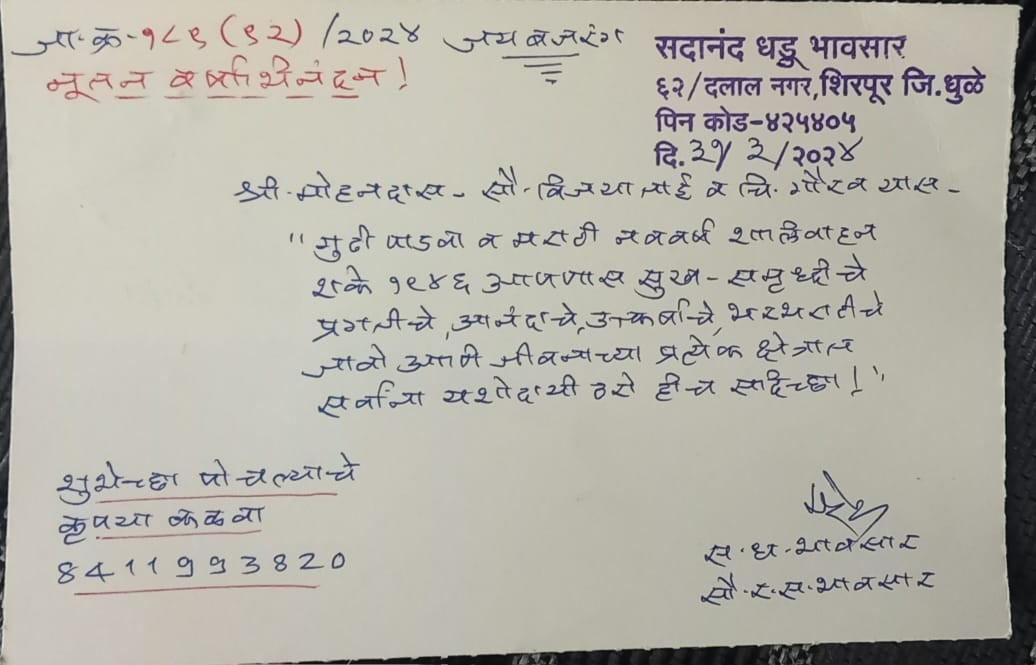 जा.क्र-१८९ (९२) /२०२४
जय बजरंग
नूतन वर्षाभिनंदन!
सदानंद धडू भावसार
६२/दलाल नगर,शिरपूर जि.धुळे
पिन कोड-४२५४०५
दि.३१/३/२०२४
श्री.मोहनदास- सौ.विजयाताई व चि.गौरव यास-
"गुढी पाडवा व मराठी नववर्ष शालिवाहन
शके १९४६ आपणास सुख-समृध्दीचे
प्रगतीचे,आनंदाचे,उत्कर्षाचे,भरभराटीचे
जावो आणि जीवनाच्या प्रत्येक क्षेत्रात
सर्वांना यशोदायी ठरो हीच सदिच्छा!"
शुभेच्छा पोचल्याचे
कृपया कळवा
8411993820
स.ध.भावसार
सौ.र.स.भावसार